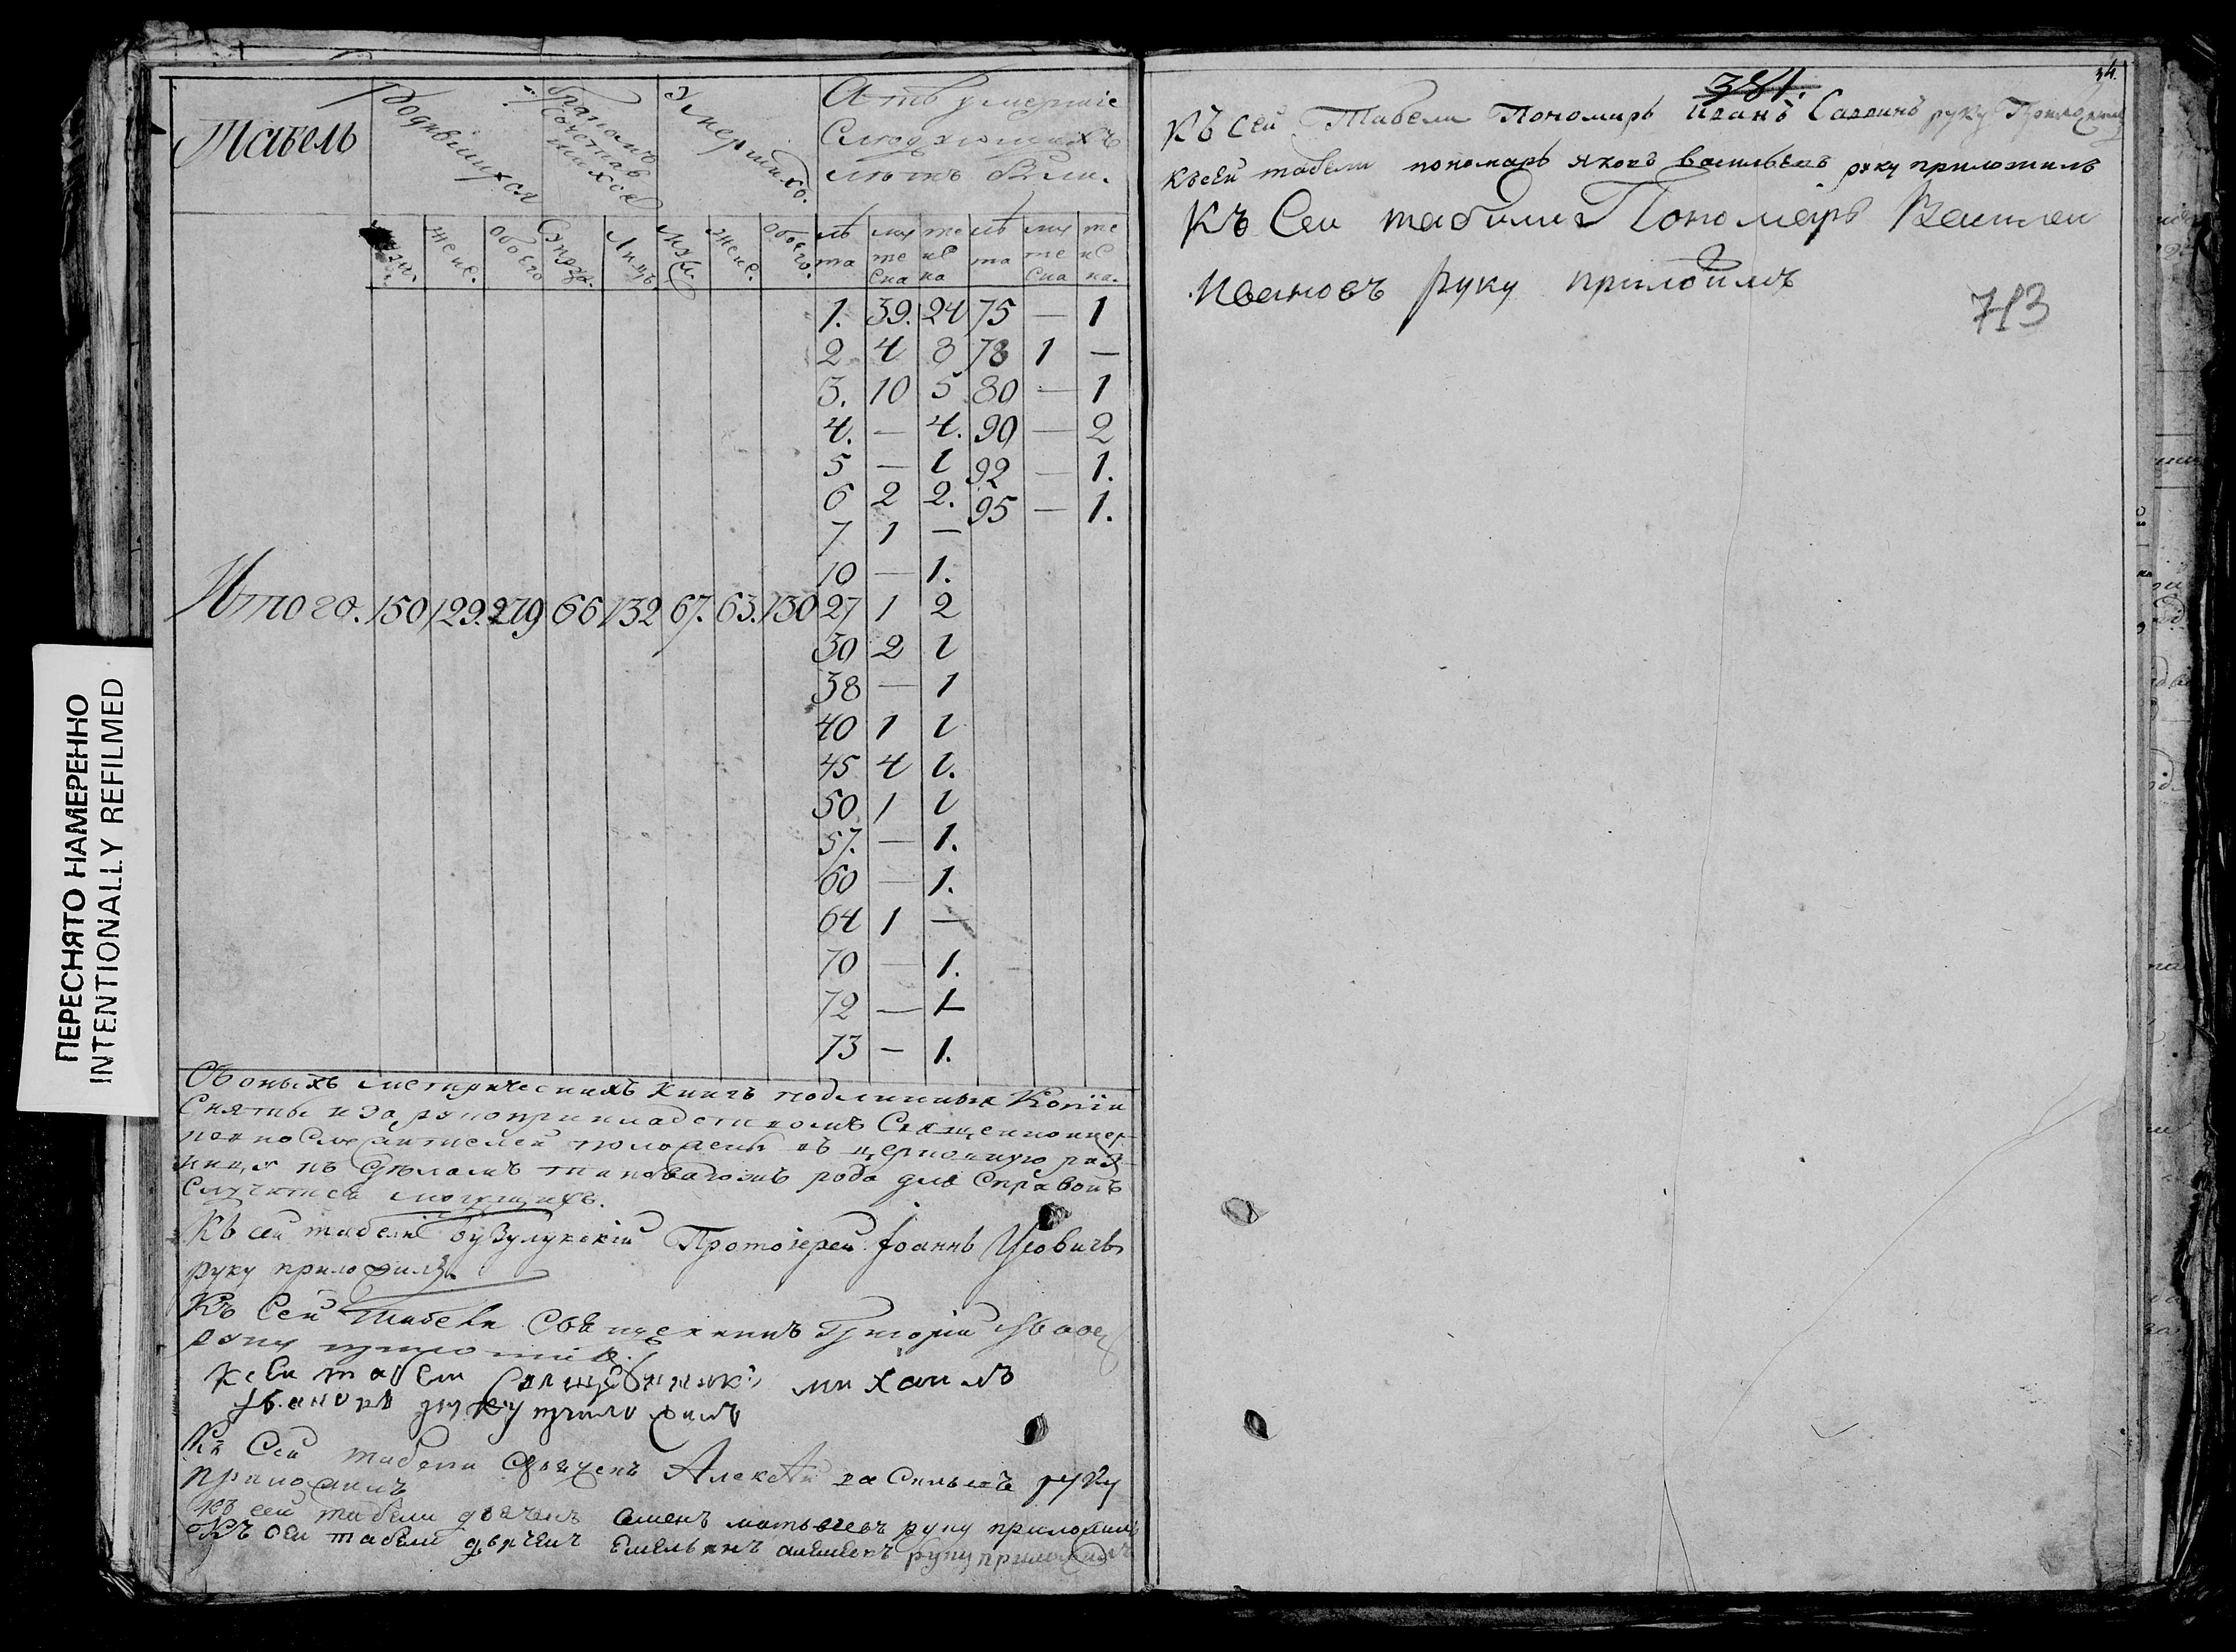 Табель
Родившихся
бракомъ сочетавшихся
Умершихъ
А отъ умершие
Следующихъ
летъ были.
муж. жене. обоего Супруж. Лицъ. муж. жене. обоего. лѣ та мужеска женска лѣ та мужеска женска.
1. 39. 24 75 — 1
2 4 8 78 1 —
3. 10 5 80 — 1
4. — 4. 90 — 2
5 — 1 92 — 1.
6 2 2. 95 — 1.
7 1 —
10 — 1.
Итого. 150 129. 279 66 132 67. 63. 130 27 1 2
30 2 1
38 — 1
40 1 1
45 4 1.
50 1 1
57. — 1.
60 — 1.
64 1 —
70 — 1.
72 — 1
73 — 1.
Съ оныхъ метрическихъ книгъ подлинныя Копіи
Сняты и за рукоприкладствомъ Священноцер-
ковнослужителей положены въ церковную риз-
ницу къ дѣламъ таковагожъ рода для Справокъ
Случится могущихъ.
Къ сей табели бузулукскій Протоіерей Іоаннъ
руку приложилъ.
Къ Сей табели Священникъ Григорій
руку приложилъ
Ксеи табели Священникъ михаилъ
Івановъ руку приложилъ
Къ Сей табели Алексѣй васильевъ руку
приложилъ
Къ сей табели дьяченъ Семенъ матвеевъ руку приложилъ
Къ сеи табели дьячекъ Емельянъ алексеевъ руку приложилъ
381.
34.
Къ сей Табели Пономарь Иванъ Саввинъ руку Приложилъ
Къ сей табели пономарь яковъ васильевъ руку приложилъ
Къ Сеи табили Пономарь Василеи
Ивановъ руку приложилъ
713
ПЕРЕСНЯТО НАМЕРЕННО
INTENTIONALLY REFILMED